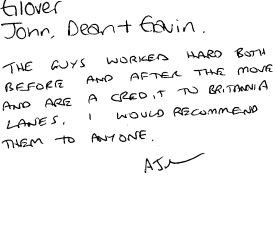 Glover
John, Dean + Gavin.
THE GUYS WORKED HARD BOTH
BEFORE AND AFTER THE MOVE
AND ARE A CREDIT TO BRITANNIA
LANES. I WOULD RECOMMEND
THEM TO ANYONE.